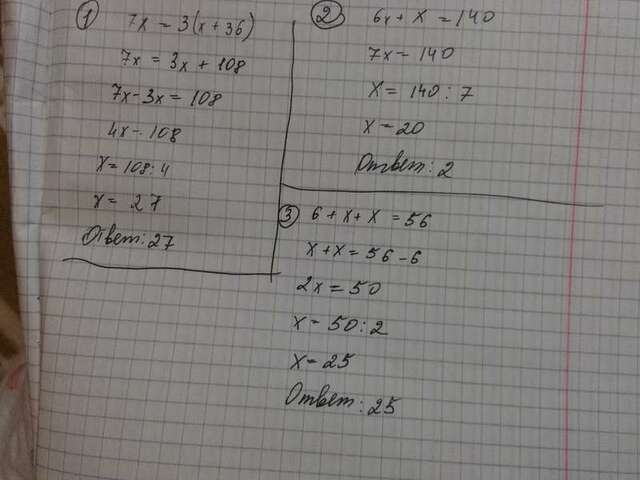 ①
7x = 3(x + 36)
7x = 3x + 108
7x - 3x = 108
4x = 108
x = 108 : 4
x = 27
Ответ: 27
②
6x + x = 140
7x = 140
x = 140 : 7
x = 20
Ответ: 2
③
6 + x + x = 56
x + x = 56 - 6
2x = 50
x = 50 : 2
x = 25
Ответ: 25